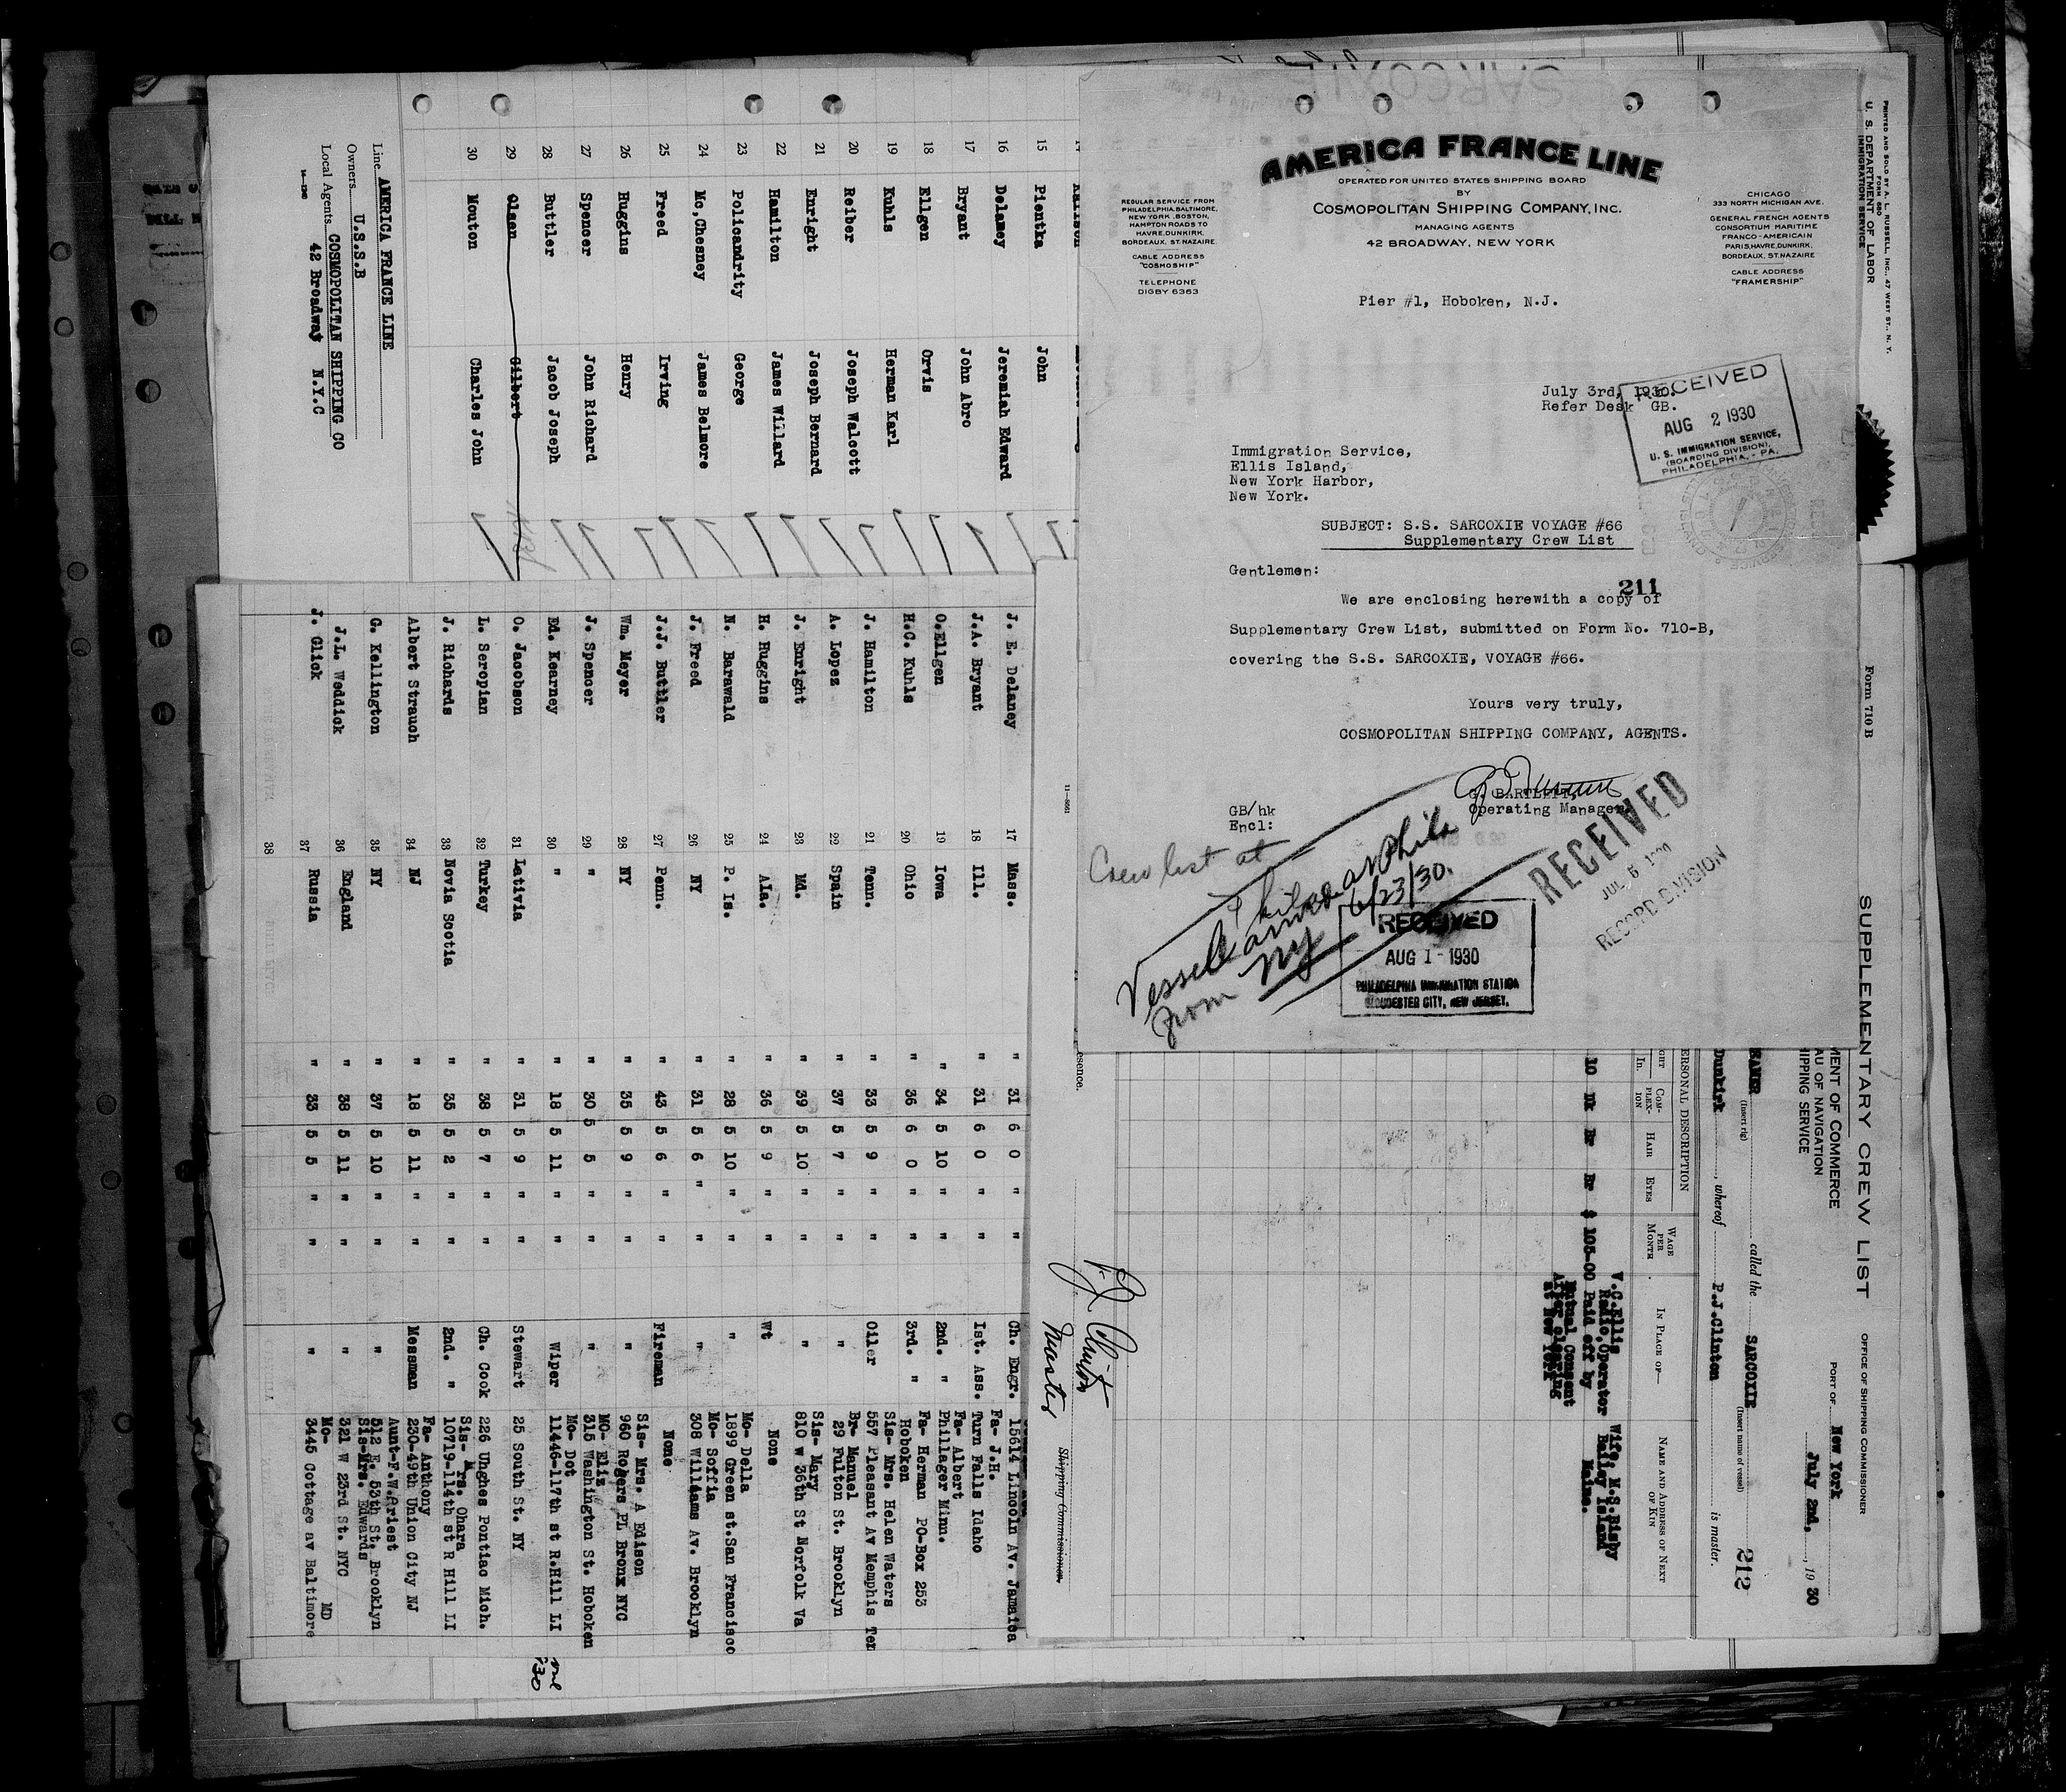 AMERICA FRANCE LINE
OPERATED FOR UNITED STATES SHIPPING BOARD
BY
COSMOPOLITAN SHIPPING COMPANY, INC.
MANAGING AGENTS
42 BROADWAY, NEW YORK
REGULAR SERVICE FROM
PHILADELPHIA, BALTIMORE,
NEW YORK, BOSTON,
HAMPTON ROADS TO
HAVRE, DUNKIRK,
BORDEAUX, ST. NAZAIRE.
CABLE ADDRESS
"COSMOSHIP"
TELEPHONE
DIGBY 6363
CHICAGO
333 NORTH MICHIGAN AVE.
GENERAL FRENCH AGENTS
CONSORTIUM MARITIME
FRANCO-AMERICAIN
PARIS, HAVRE, DUNKIRK,
BORDEAUX, ST. NAZAIRE
CABLE ADDRESS
"FRAMERSHIP"
Pier #1, Hoboken, N.J.
July 3rd, 1930.
Refer Desk GB.
RECEIVED
AUG 2 1930
U. S. IMMIGRATION SERVICE,
(BOARDING DIVISION),
PHILADELPHIA, - PA.
Immigration Service,
Ellis Island,
New York Harbor,
New York.
SUBJECT: S.S. SARCOXIE VOYAGE #66
Supplementary Crew List
Gentlemen:
211
We are enclosing herewith a copy of
Supplementary Crew List, submitted on Form No. 710-B,
covering the S.S. SARCOXIE, VOYAGE #66.
Yours very truly,
COSMOPOLITAN SHIPPING COMPANY, AGENTS.
G. BARTLETT,
Operating Manager
GB/hk
Encl:
Crew list at
Phila
Vessel arrived at Phila
from NY 6/23/30.
RECEIVED
JUL 5 1930
RECORD DIVISION
RECEIVED
AUG 1 - 1930
PHILADELPHIA IMMIGRATION STATION
GLOUCESTER CITY, NEW JERSEY.
PRINTED AND SOLD BY A. L. RUSSELL, INC., 47 WEST ST., N. Y.
FORM 680
U. S. DEPARTMENT OF LABOR
IMMIGRATION SERVICE
Form 710 B
SUPPLEMENTARY CREW LIST
OFFICE OF SHIPPING COMMISSIONER
MENT OF COMMERCE
AU OF NAVIGATION
HIPPING SERVICE
PORT OF New York
July 2nd, , 19 30
212
EAMER called the SARCOXIE
(Insert rig) (Insert name of vessel)
Dunkirk , whereof P.J.Clinton is master.
ERSONAL DESCRIPTION
GHT
In.
COM-PLEX-ION
HAIR
EYES
WAGE PER MONTH
IN PLACE OF—
NAME AND ADDRESS OF NEXT OF KIN
10 Dk Br Br $ 105-00
V.C.Ellis
Radio Operator
Paid off by
Mutual Consent
After clearing
at New York
Wife; M.S.Bisby
Bailey Island
Maine.
P J Clinton
Master
Shipping Commissioner.
esence.
15 Pientka John
16 Delaney Jeremiah Edward
17 Bryant John Abro
18 Ellgen Orvis
19 Kuhls Herman Karl
20 Reiber Joseph Walcott
21 Enright Joseph Bernard
22 Hamilton James Willard
23 Policandrity George
24 Mc,Chesney James Belmore
25 Freed Irving
26 Huggins Henry
27 Spencer John Richard
28 Buttler Jacob Joseph
29 Olsen Gilbert
30 Mouton Charles John
Line AMERICA FRANCE LINE
Owners U.S.S.B
Local Agents COSMOPOLITAN SHIPPING CO
42 Broadway N.Y.C
J. E. Delaney 17 Mass. " 31 6 0 " " Ch. Engr. 15614 Lincoln Av. Jamaica
Fa- J.H.
J.A. Bryant 18 Ill. " 31 6 0 " " Ist. Ass. Turn Falls Idaho
Fa- Albert
O.Ellgen 19 Iowa " 34 5 10 " " 2nd. " Phillager Minn.
Fa- Herman PO-Box 253
H.C. Kuhls 20 Ohio " 36 6 0 " " 3rd. " Hoboken
Sis- Mrs. Helen Waters
J. Hamilton 21 Tenn. " 33 5 9 " " Oiler 557 Pleasant Av Memphis Ten
Br- Manuel
A. Lopez 22 Spain " 37 5 7 " " " 29 Fulton St. Brooklyn
Sis- Mary
J. Enright 23 Md. " 39 5 10 " " " 810 W 36th St Norfolk Va
H. Huggins 24 Ala. " 36 5 9 " " Wt None
Mo- Della
N. Barawald 25 P. Is. " 28 5 10 " " " 1899 Green st.San Francisco
Mo- Soffia
J. Freed 26 NY " 31 5 6 " " " 308 Williams Av. Brooklyn
J.J. Buttler 27 Penn. " 43 5 6 " " Fireman None
Sis- Mrs. A Edison
Wm. Meyer 28 NY " 35 5 9 " " " 960 Rogers PL Bronx NYC
MO- Eliz
J. Spencer 29 " " 30 5 5 " " " 315 Washington St. Hoboken
Mo- Dot
Ed. Kearney 30 " " 18 5 11 " " Wiper 11446-117th st R.Hill LI
O. Jacobson 31 Lativia " 31 5 9 " " Stewart 25 South St. NY
L. Seropian 32 Turkey " 38 5 7 " " Ch. Cook 226 Unghes Pontiac Mich.
Sis- Mrs. Ohara
J. Richards 33 Novia Scotia " 35 5 2 " " 2nd. " 10719-114th st R Hill LI
Fa- Anthony
Albert Strauch 34 NJ " 18 5 11 " " Messman 230-49th Union City NJ
Aunt-F.W.Priest
G. Kellington 35 NY " 37 5 10 " " " 512 E. 53th St. Brooklyn
Sis-Mrs. Edwards
J.L. Weddick 36 England " 38 5 11 " " " 321 W 23rd St. NYC
Mo- MD
J. Glick 37 Russia " 33 5 5 " " " 3445 Cottage av Baltimore
38